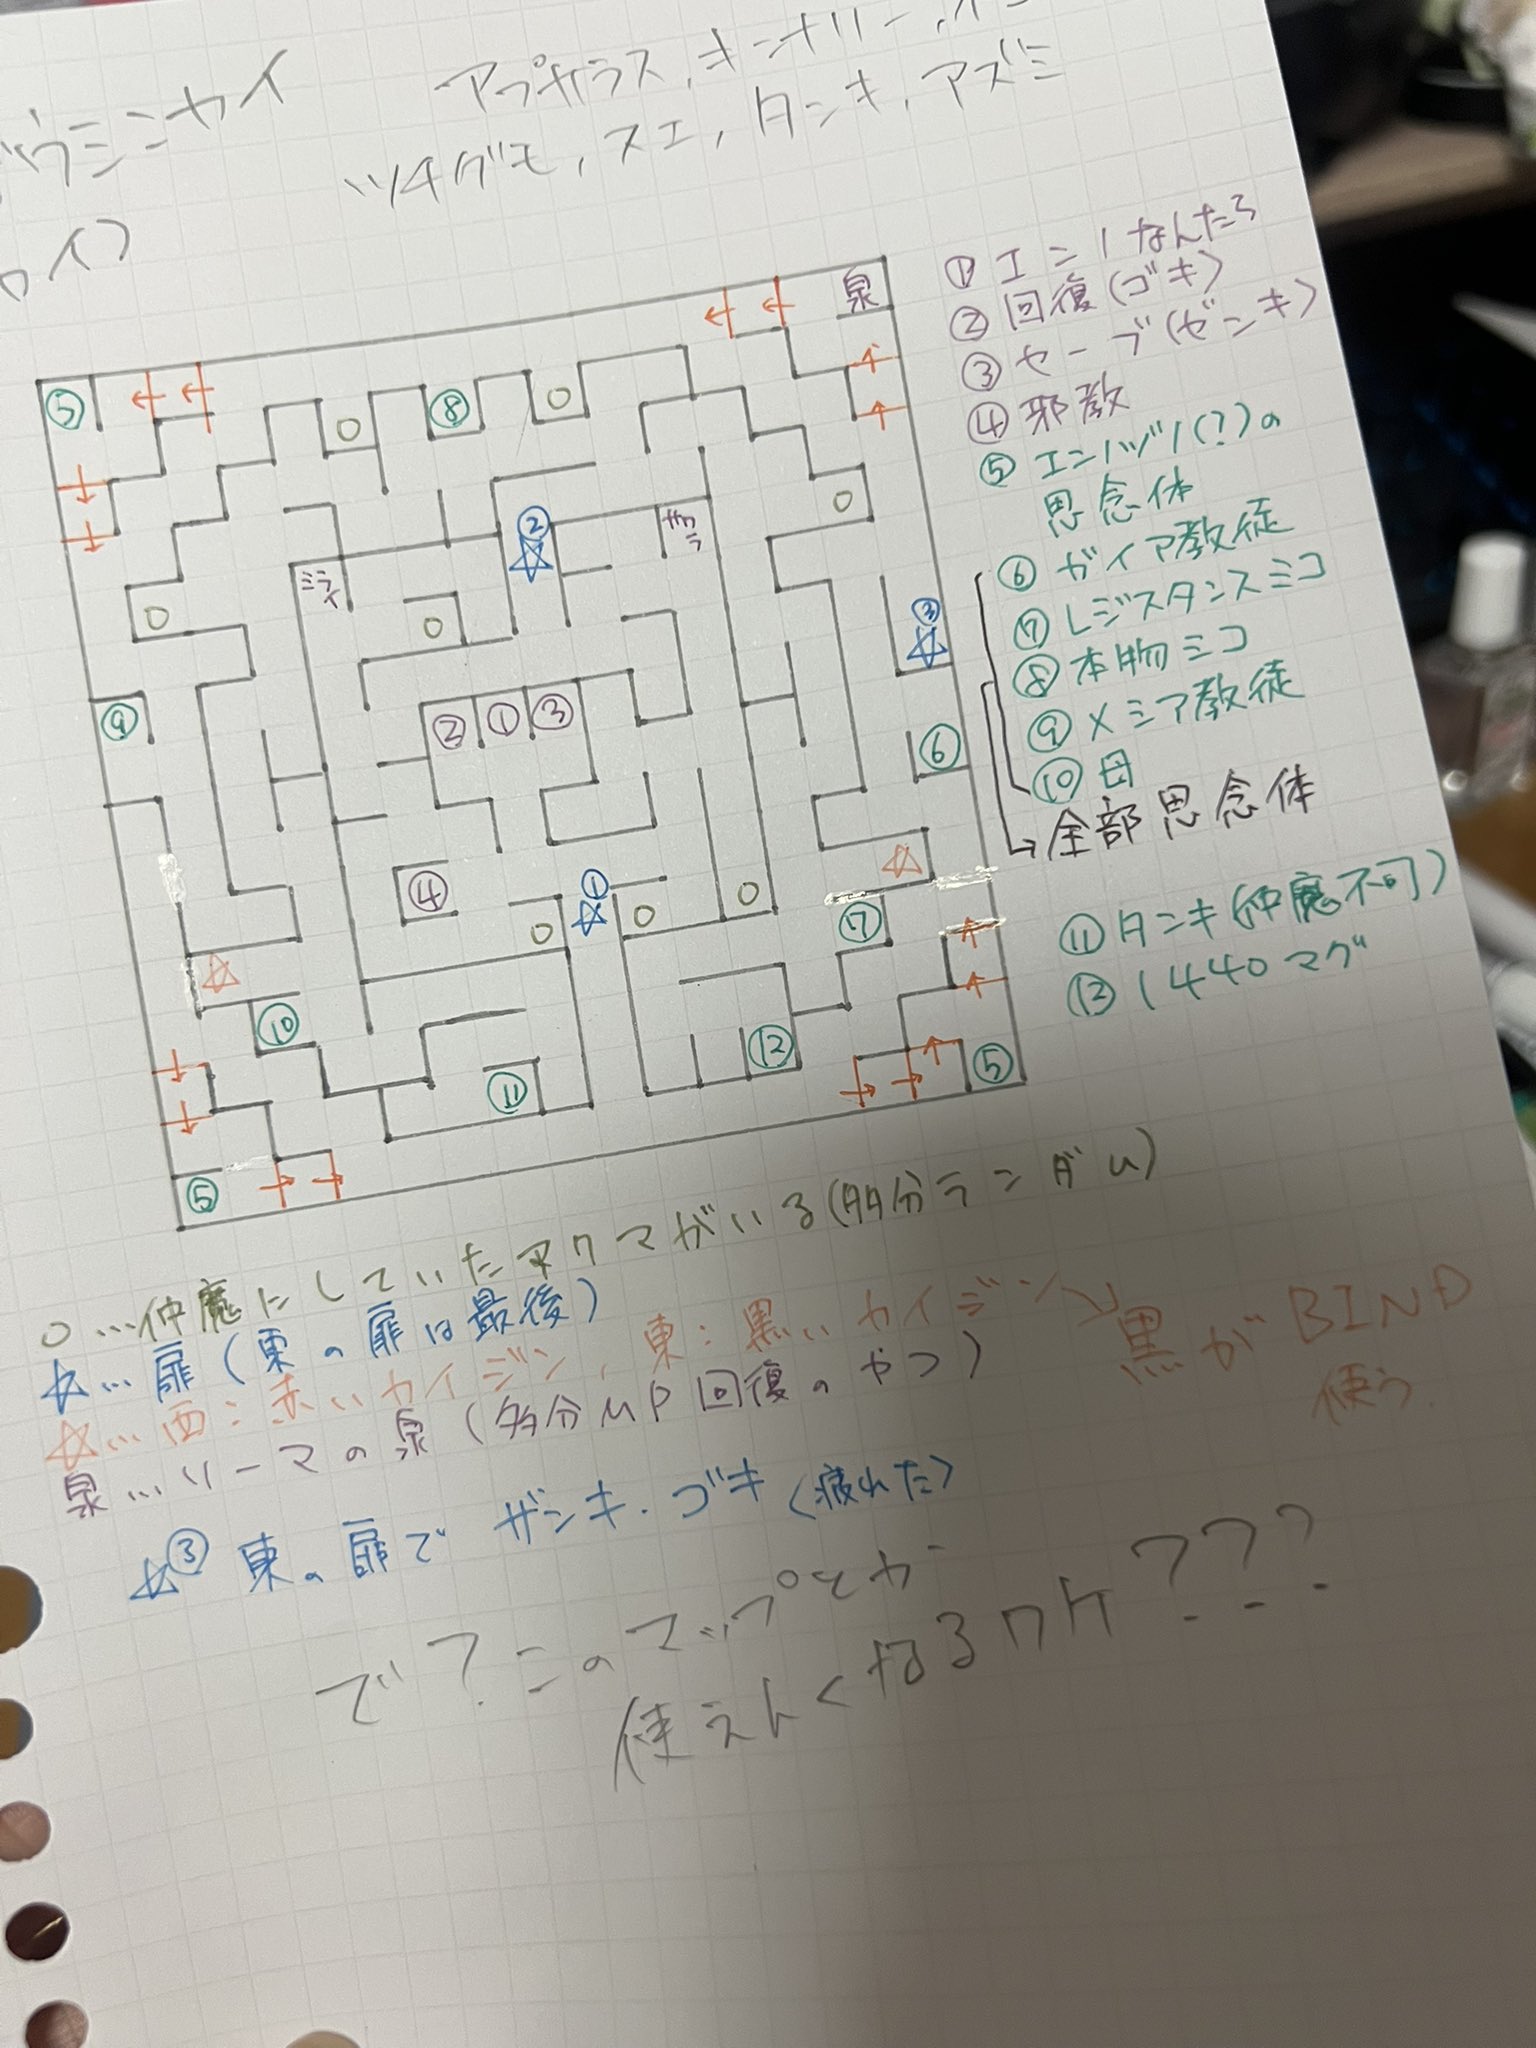 アプサラス,キンナリー,
ツチグモ,スエ,タンキ,アズミ
①エン/なんたら
②回復(ゴキ)
③セーブ(ゼンキ)
④邪教
⑤エンノヅノ(?)の
思念体
⑥ガイア教徒
⑦レジスタンスミコ
⑧本物ミコ
⑨メシア教徒
⑩母
→全部思念体
⑪タンキ(仲魔不可)
⑫1440マグ
泉
⑤
○
⑧
○
②☆
サクラ
○
ミライ
○
○
③☆
⑨
②①③
⑥
④
①☆
○
○
○
☆
⑦
☆
⑩
⑫
⑪
⑤
⑤
○…仲魔にしていたアクマがいる(多分ランダム)
☆…扉(東の扉は最後)
☆…西:赤いカイジン,東:黒いカイジン→黒がBIND
使う.
泉…ソーマの泉(多分MP回復のやつ)
☆③東の扉でザンキ・ゴキ(疲れた)
で?このマップとか
使えんくなるワケ???